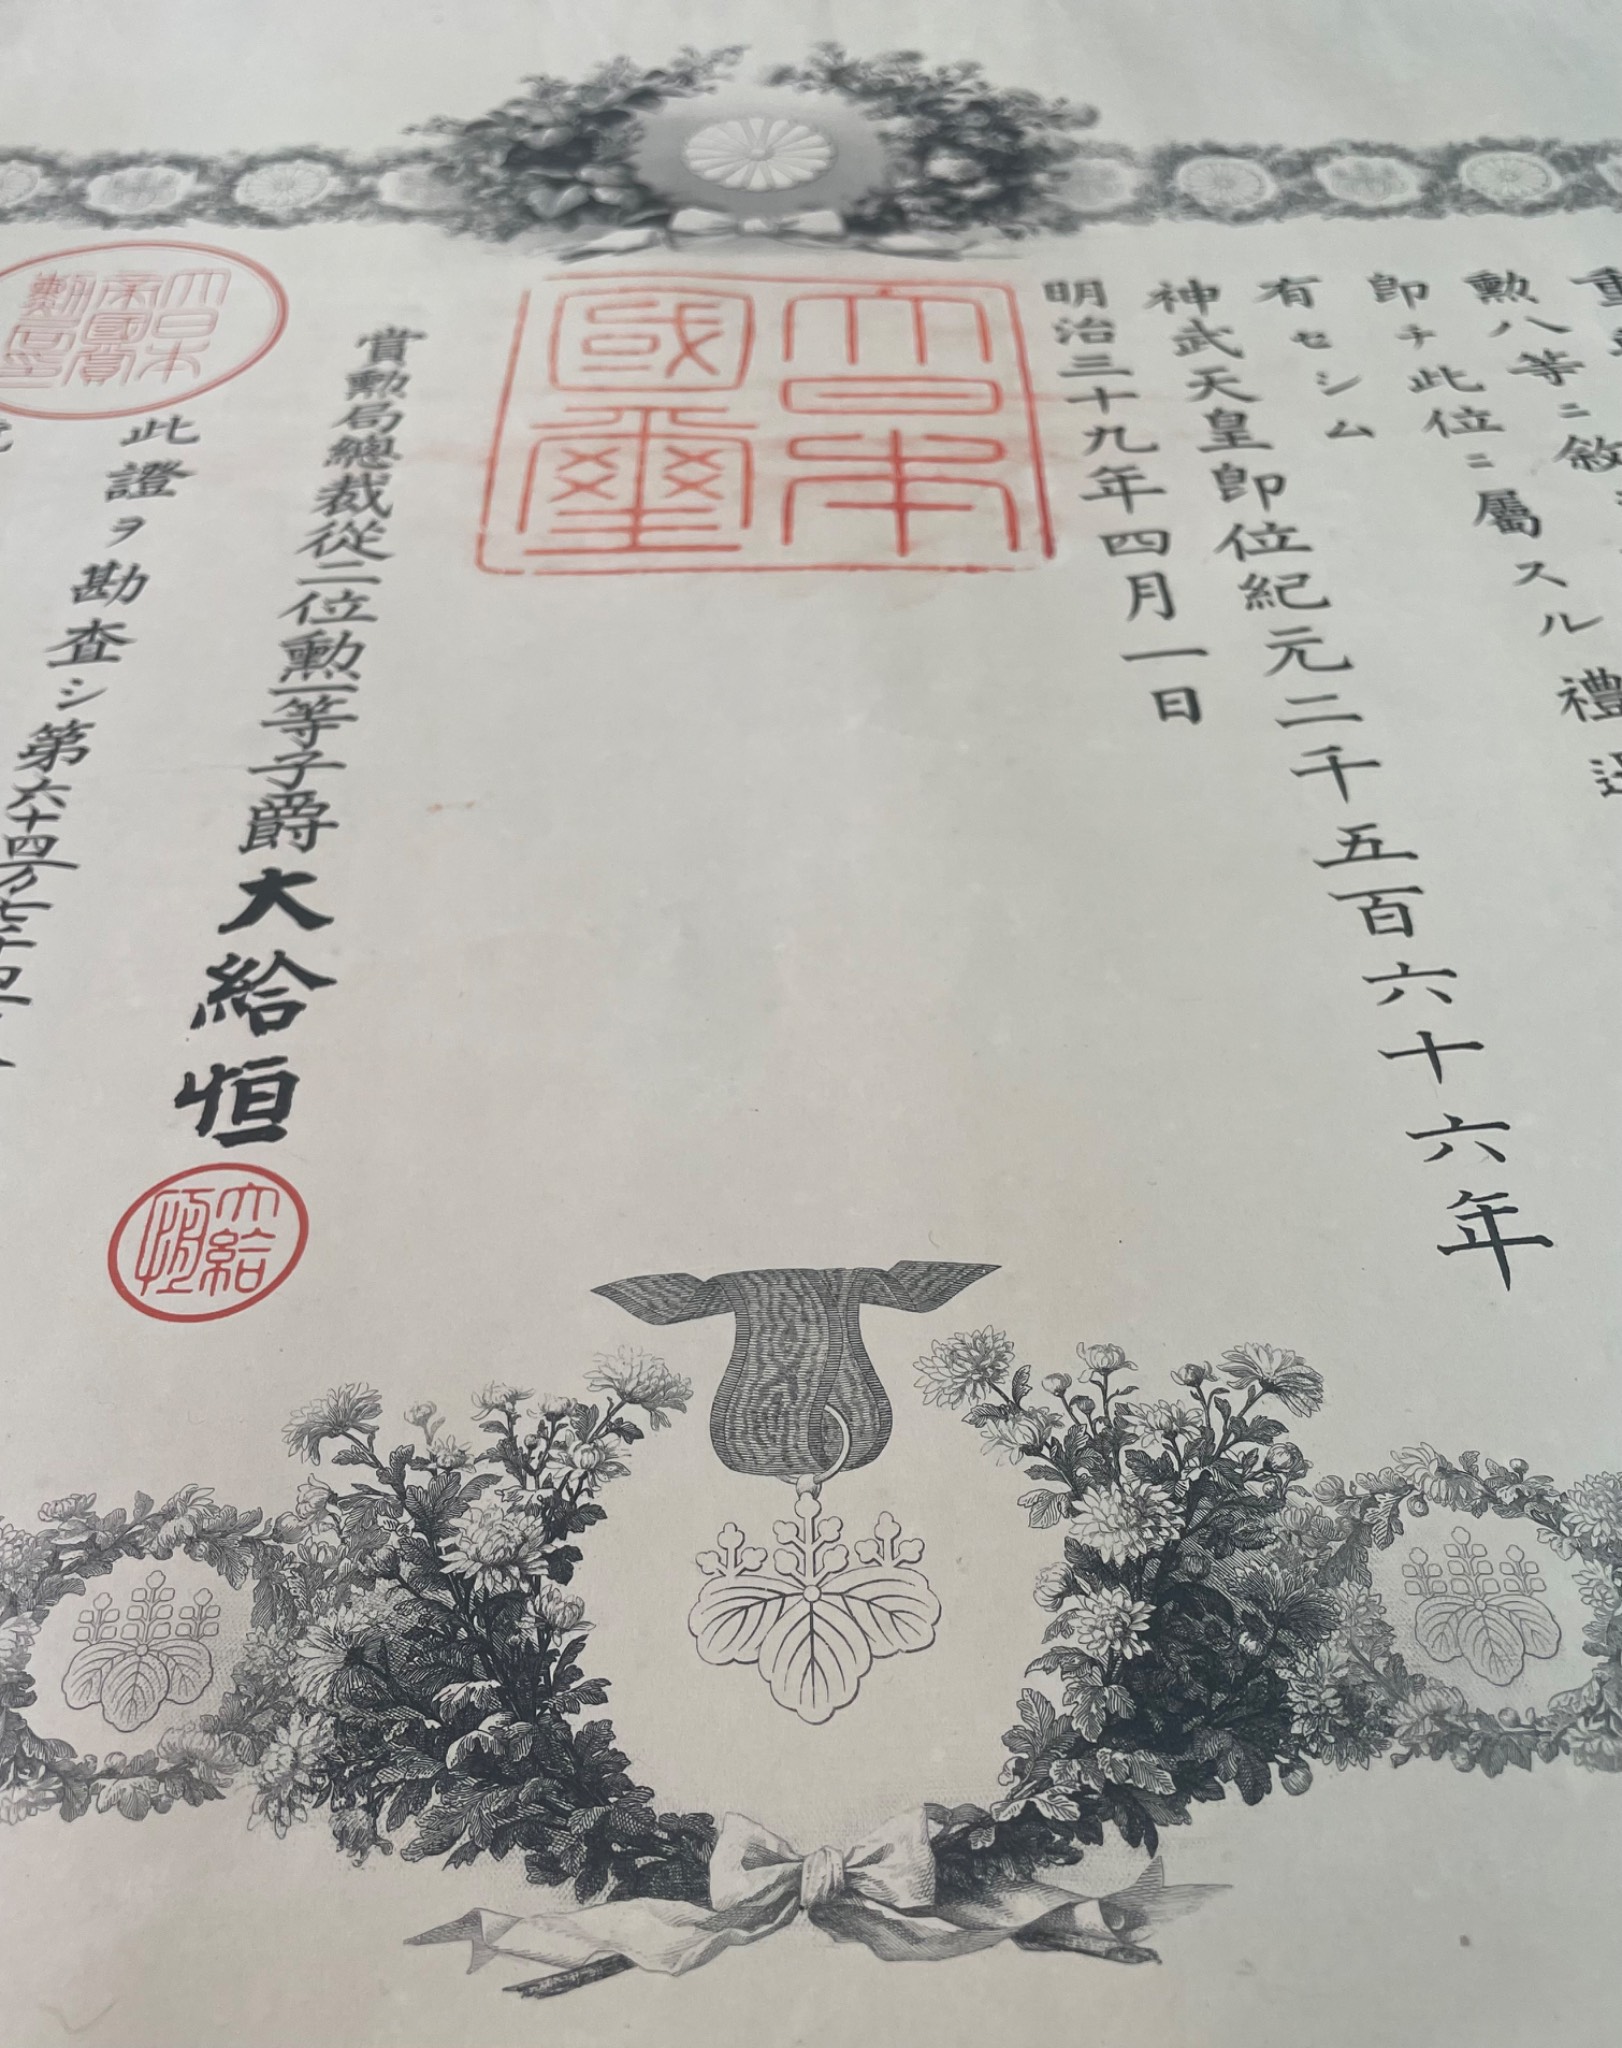 勲八等ニ敘
即チ此位ニ屬スル禮
有セシム
神武天皇即位紀元二千五百六十六年
明治三十九年四月一日
大日本國璽
賞勲局總裁從二位勲一等子爵大給恒
大給恒
大日本帝國賞勲局印
此證ヲ勘査シ第六十四万七千四